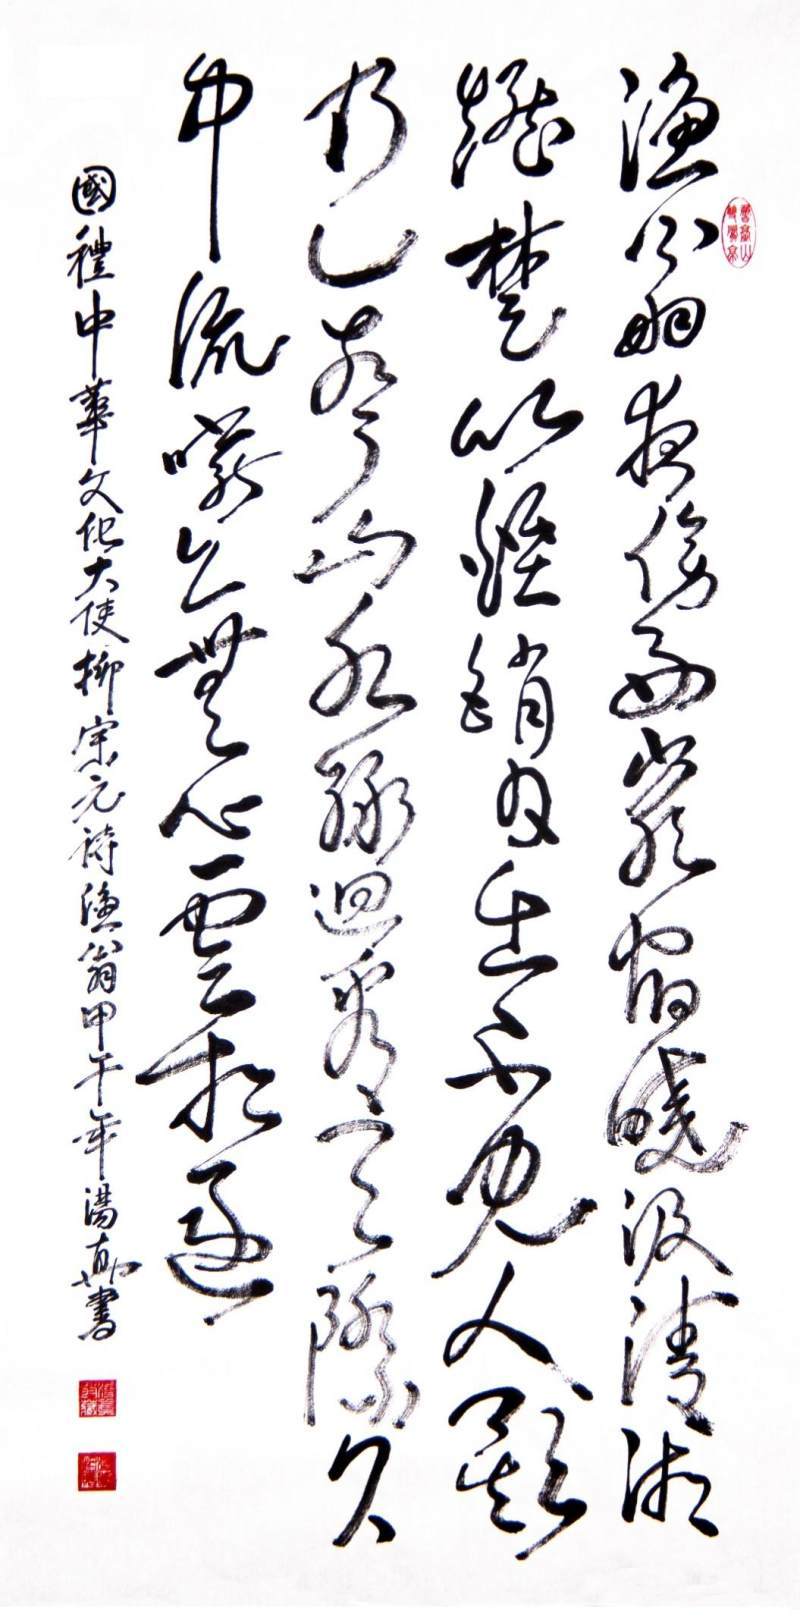 漁翁夜傍西巖宿曉汲清湘
燃楚竹煙銷日出不見人欸
乃一聲山水綠迴看天際下
中流巖上無心雲相逐
國禮中華文化大使柳宗元詩漁翁甲午年湯書